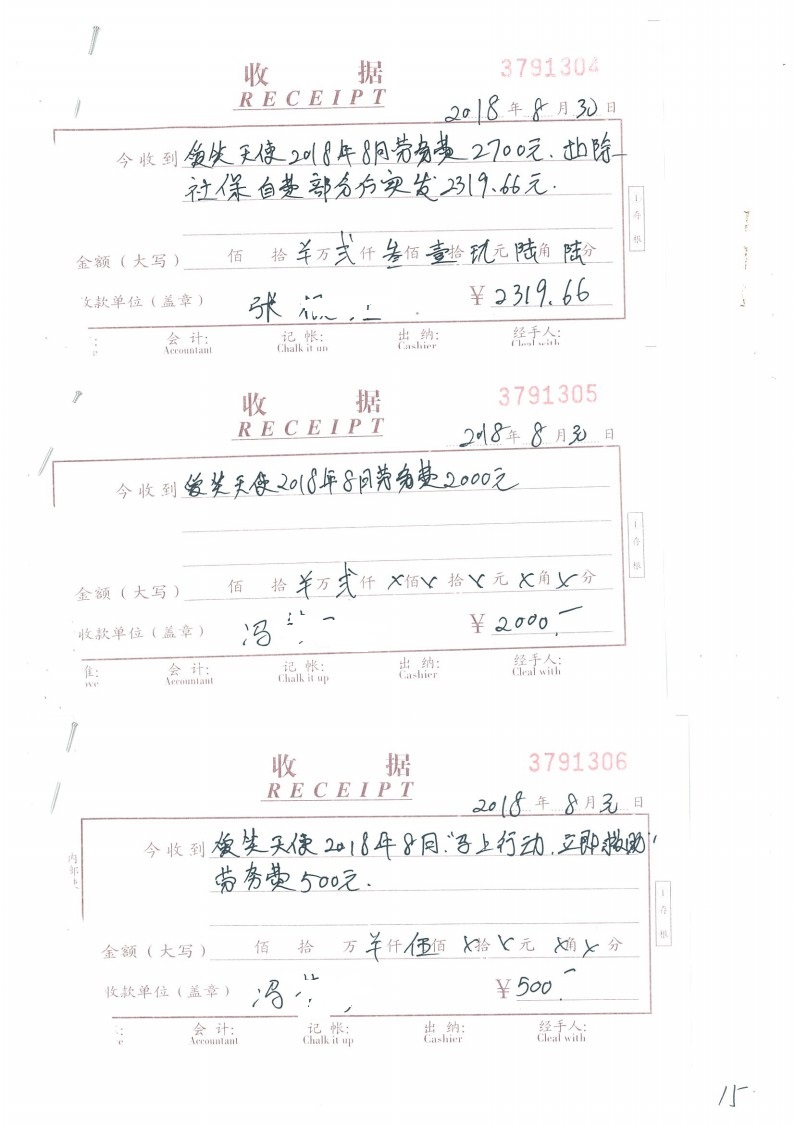 收 据 3791304
RECEIPT
2018年8月30日
今收到 爱笑天使2018年8月劳务费2700元.扣除
社保自费部分后实发2319.66元.
1存根
金额（大写） 佰 拾 羊万 弍仟 叁佰 壹拾 玖元 陆角 陆分
收款单位（盖章） 张 ¥ 2319.66
会 计: 记 帐: 出 纳: 经手人:
Accountant Chalk it up Cashier Cleal with
收 据 3791305
RECEIPT
2018年8月30日
今收到 爱笑天使2018年8月劳务费2000元
1存根
金额（大写） 佰 拾 羊万 弍仟 ×佰 × 拾 × 元 × 角 × 分
收款单位（盖章） 冯 ¥ 2000.-
准: 会 计: 记 帐: 出 纳: 经手人:
ove Accountant Chalk it up Cashier Cleal with
收 据 3791306
RECEIPT
2018年8月30日
今收到 爱笑天使2018年8月"马上行动.立即救助"
内部
劳务费500元.
1存根
金额（大写） 佰 拾 万 羊仟 伍佰 ×拾 × 元 ×角 × 分
收款单位（盖章） 冯 ¥ 500.-
会 计: 记 帐: 出 纳: 经手人:
e Accountant Chalk it up Cashier Cleal with
15